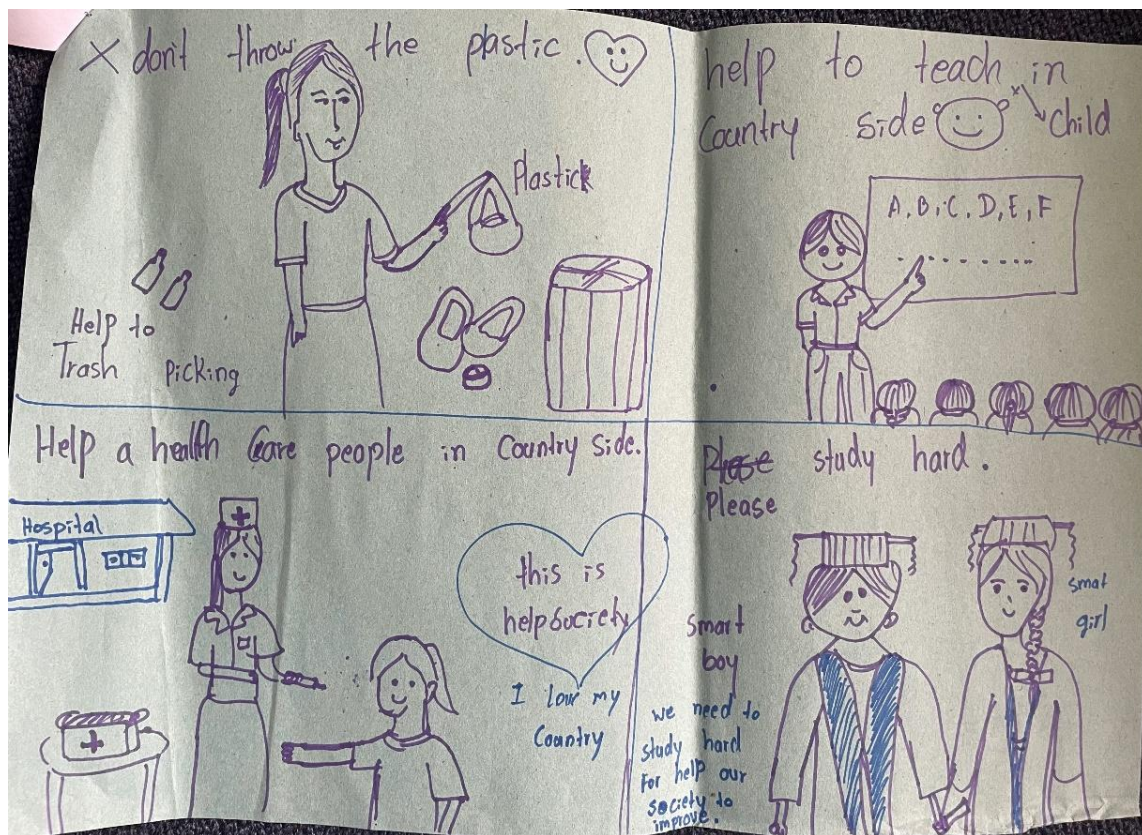 X don't throw the plastic.
Plastick
Help to
Trash picking
help to teach in
Country side
Child
A, B, C, D, E, F
Help a health Care people in Country side.
Hospital
this is
help society
I love my
Country
Please study hard.
Please
smart
boy
smat
girl
we need to
study hard
For help our
society to
improve.